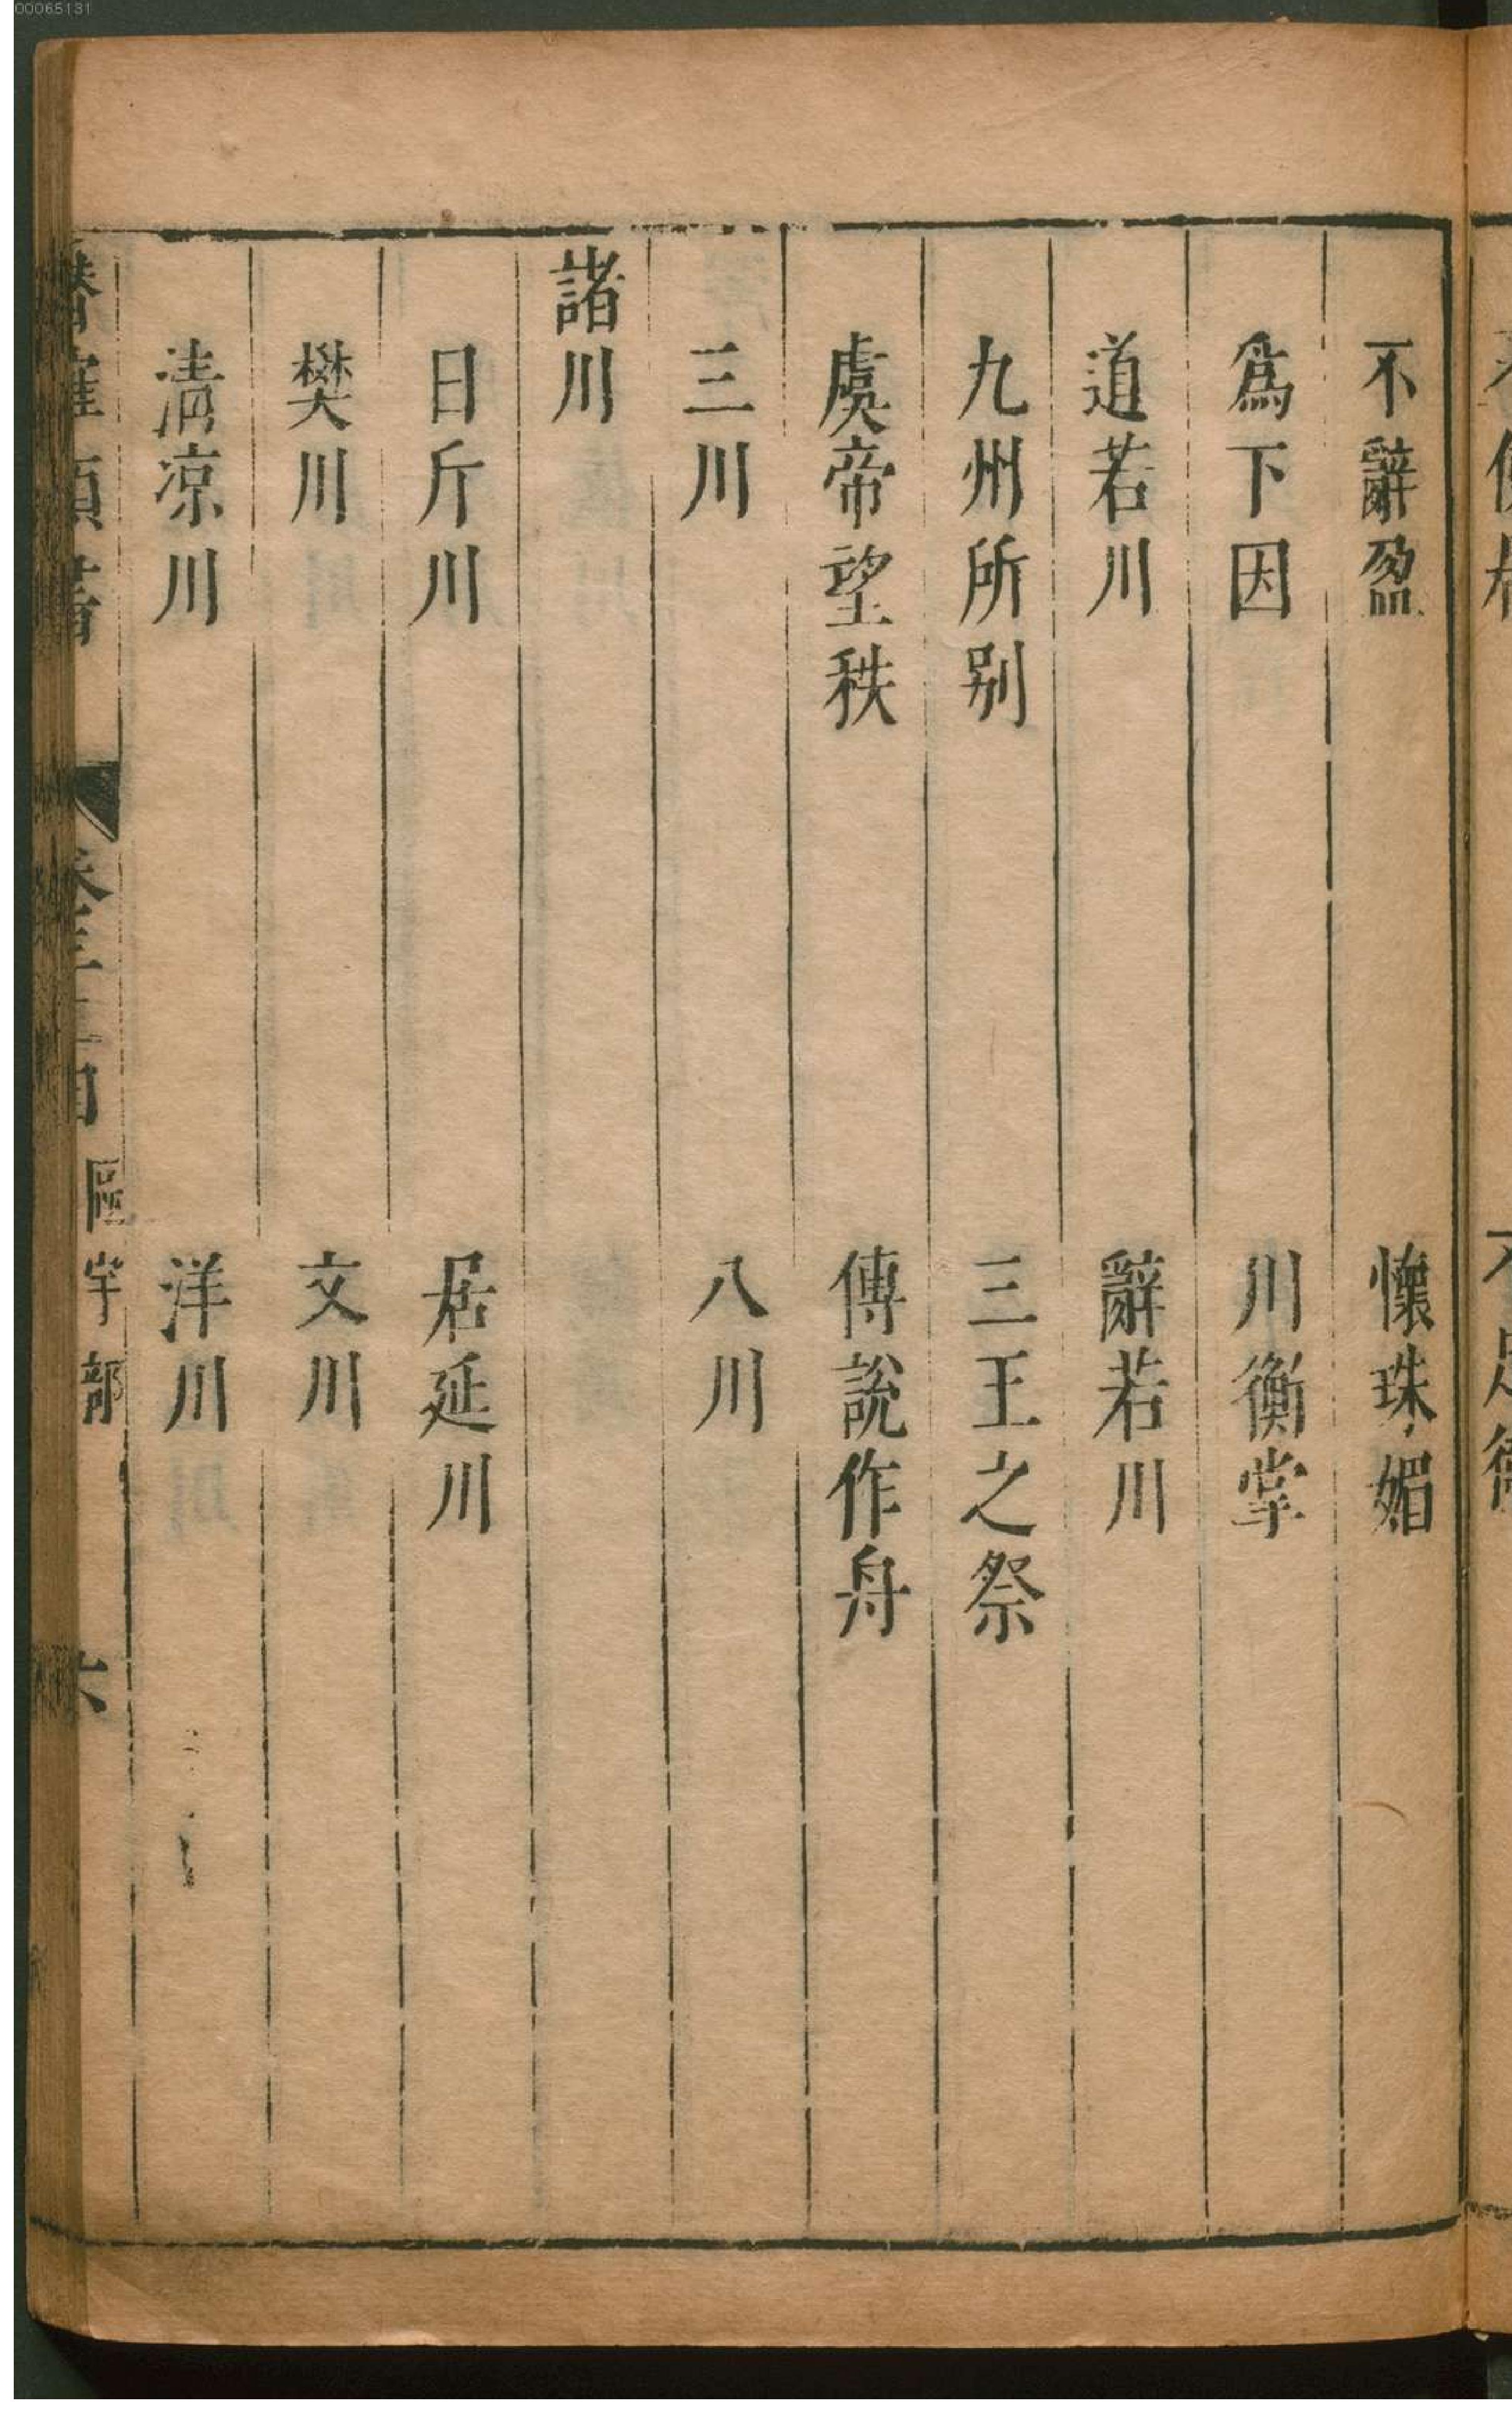 00065131
不辭盈 懷珠媚
爲下因 川衡掌
道若川 辭若川
九州所别 三王之祭
虞帝望秩 傅說作舟
三川 八川
諸川
日斤川 居延川
樊川 文川
淸凉川 洋川
區宇部 六